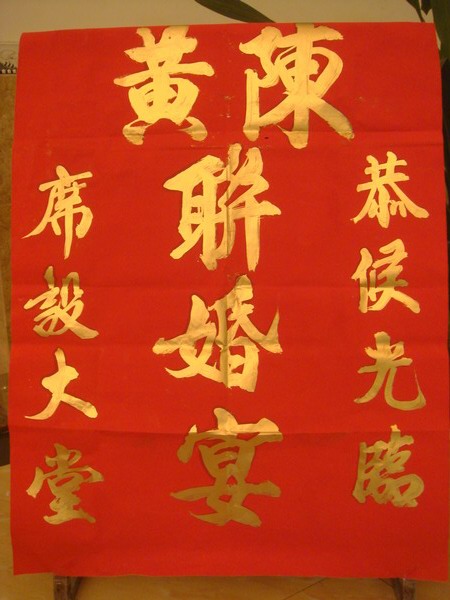 恭候光臨
陳黃
聯婚宴
席設大堂